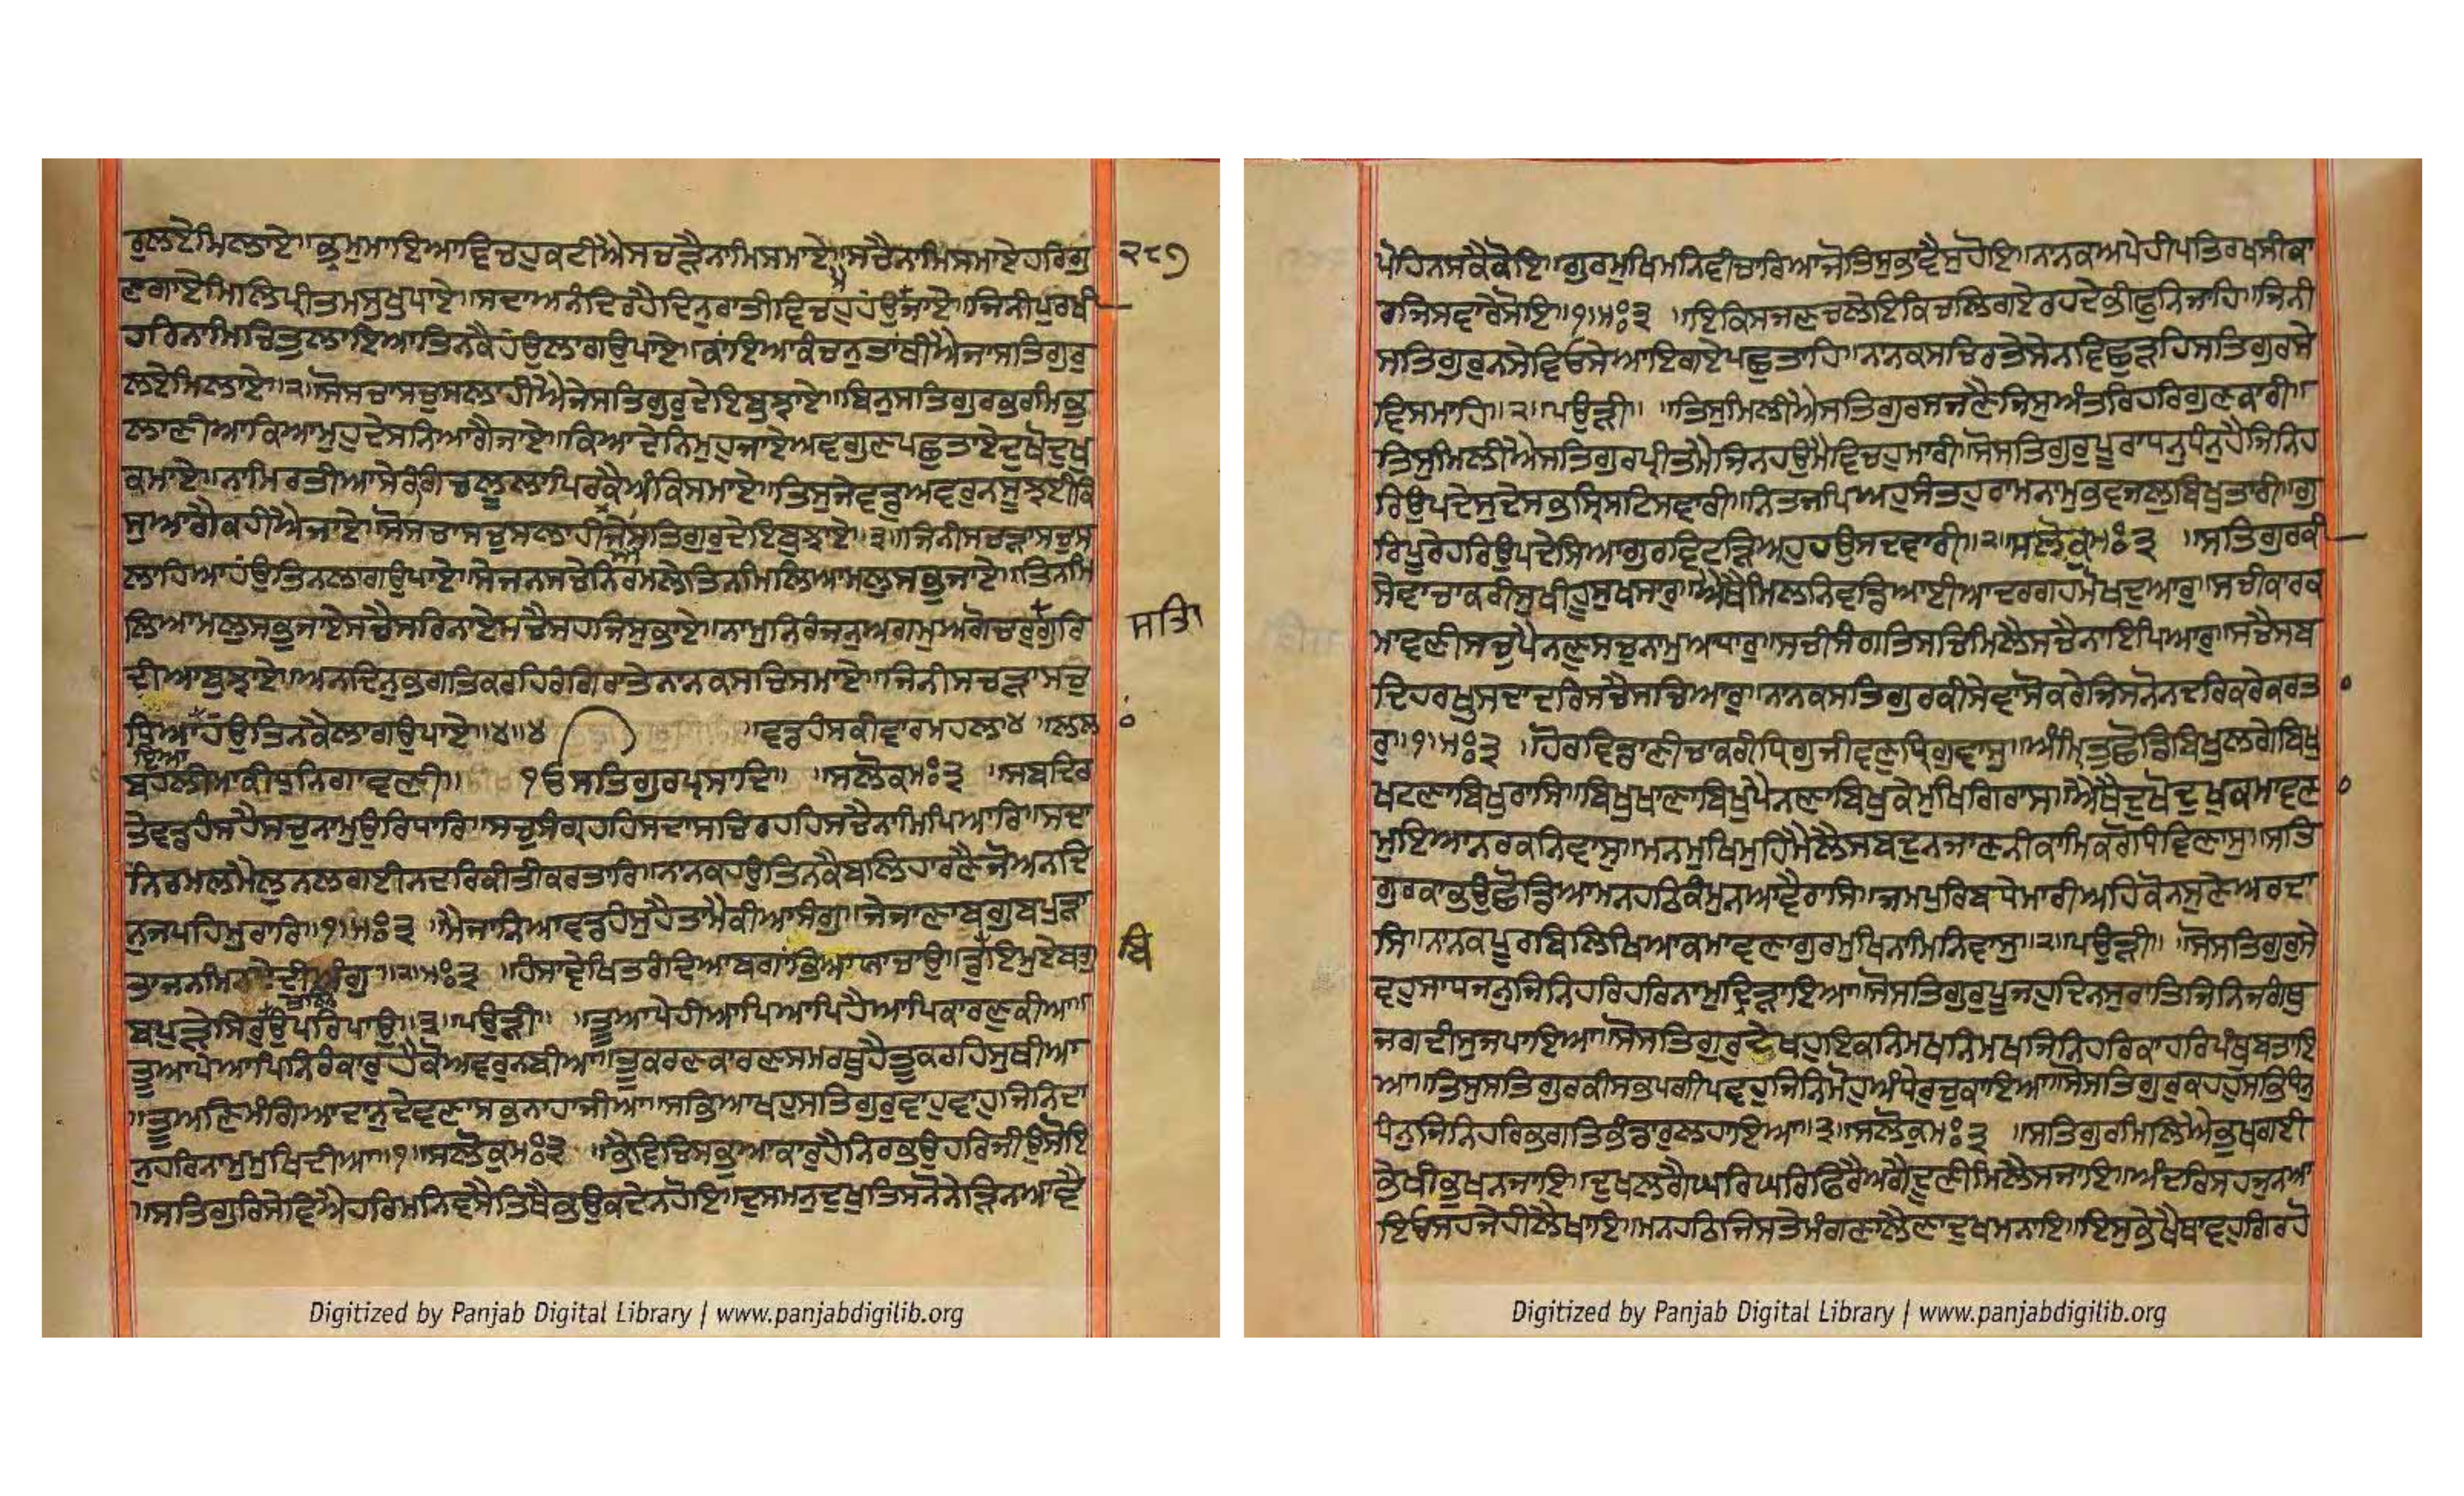 ਰੁਲਏਮਿਲਾਏ॥ਭ੍ਰਮਮਾਇਆਵਿਚਹੁਕਟੀਐਸਚੜੈਨਾਮਿਸਮਾਏ॥ਸਚੈਨਾਮਿਸਮਾਏਹਰਿਗੁ
ਣਗਾਏਮਿਲਿਪ੍ਰੀਤਮਸੁਖੁਪਾਏ॥ਸਦਾਅਨੰਦਿਰਹੈਦਿਨੁਰਾਤੀਵਿਚਹੁਹੰਉਜਾਏ॥ਜਿਨੀਪੁਰਖੀ
ਹਰਿਨਾਮਿਚਿਤੁਲਾਇਆਤਿਨਕੈਹੰਉਲਾਗਉਪਾਏ॥ਕਾਂਇਆਕੰਚਨੁਤਾਂਥੀਐਜਾਸਤਿਗੁਰੁ
ਲਏਮਿਲਾਏ॥੨॥ਸੋਸਚਾਸਚੁਸਲਾਹੀਐਜੇਸਤਿਗੁਰੁਦੇਇਬੁਝਾਏ॥ਬਿਨੁਸਤਿਗੁਰਭਰਮਿਭੁ
ਲਾਣੀਆਕਿਆਮੁਹੁਦੇਸਨਿਆਗੈਜਾਏ॥ਕਿਆਦੇਨਿਮੁਹੁਜਾਏਅਵਗੁਣਪਛੁਤਾਏਦੁਖੋਦੁਖੁ
ਕਮਾਏ॥ਨਾਮਿਰਤੀਆਸੇਰੰਗਿਚਲੂਲਾਪਿਰਕੈਅੰਕਿਸਮਾਏ॥ਤਿਸੁਜੇਵਡੁਅਵਰੁਨਸੂਝਈਕਿ
ਸੁਆਗੈਕਹੀਐਜਾਏ॥ਸੋਸਚਾਸਚੁਸਲਾਹੀਜੇਸਤਿਗੁਰੁਦੇਇਬੁਝਾਏ॥੩॥ਜਿਨੀਸਚੜਾਸਚੁਸ
ਲਾਹਿਆਹੰਉਤਿਨਲਾਗਉਪਾਏ॥ਸੇਜਨਸਚੇਨਿਰਮਲੇਤਿਨਮਿਲਿਆਮਲੁਸਭੁਜਾਏ॥ਤਿਨਮਿ
ਲਿਆਮਲੁਸਭੁਜਾਏਸਚੈਸਰਿਨਾਏਸਚੈਸਹਜਿਸੁਭਾਏ॥ਨਾਮੁਨਿਰੰਜਨੁਅਗਮੁਅਗੋਚਰੁਗੁਰਿ
ਦੀਆਬੁਝਾਏ॥ਅਨਦਿਨੁਭਗਤਿਕਰਹਿਰੰਗਿਰਾਤੇਨਾਨਕਸਚਿਸਮਾਏ॥ਜਿਨੀਸਚੜਾਸਚੁ
ਧਿਆਹੰਉਤਿਨਕੈਲਾਗਉਪਾਏ॥੪॥੪ ॥ਵਡਹੰਸਕੀਵਾਰਮਹਲਾ੪ ॥ਲਲ
ਬਹਲੀਮਾਕੀਧੁਨਿਗਾਵਣੀ॥ ੧ੳਸਤਿਗੁਰਪ੍ਰਸਾਦਿ॥ ॥ਸਲੋਕਮਃ੩ ॥ਸਬਦਿਰ
ਤੇਵਡਹੰਸਹੈਸਚੁਨਾਮੁਉਰਿਧਾਰਿ॥ਸਚੁਸੰਗ੍ਰਹਹਿਸਦਾਸਚਿਰਹਹਿਸਚੈਨਾਮਿਪਿਆਰਿ॥ਸਦਾ
ਨਿਰਮਲਮੈਲੁਨਲਗਈਨਦਰਿਕੀਤੀਕਰਤਾਰਿ॥ਨਾਨਕਹਉਤਿਨਕੈਬਲਿਹਾਰਣੈਜੋਅਨਦਿ
ਨੁਜਪਹਿਮੁਰਾਰਿ॥੧॥ਮਃ੩ ॥ਮੈਜਾਨਿਆਵਡਹੰਸੁਹੈਤਾਮੈਕੀਆਸੰਗੁ॥ਜੇਜਾਣਾਬਗੁਬਪੁੜਾ
੨॥ਮਃ੩ ॥ਹੰਸਾਵੇਖਿਤਰੰਦਿਆਬਗਾਂਭਿਆਯਾਚਾਉ॥ਡੁਬਿਮੁਏਬਗੁ
ਬਪੁੜੇਸਿਰੁਉਪਰਿਪਾਉ॥੩॥ਪਉੜੀ॥ ॥ਤੂਆਪੇਹੀਆਪਿਆਪਿਹੈਆਪਿਕਾਰਣੁਕੀਆ॥
ਤੂਆਪੇਆਪਿਨਿਰੰਕਾਰੁਹੈਕੋਅਵਰੁਨਬੀਆ॥ਤੂਕਰਣਕਾਰਣਸਮਰਥੁਹੈਤੂਕਰਹਿਸੁਥੀਆ
॥ਤੂਅਣਮੰਗਿਆਦਾਨੁਦੇਵਣਾਸਭਨਾਹਾਜੀਆ॥ਸਭਿਆਖਹੁਸਤਿਗੁਰੁਵਾਹੁਵਾਹੁਜਿਨਿਦਾ
ਨੁਹਰਿਨਾਮੁਮੁਖਿਦੀਆ॥੧॥ਸਲੋਕੁਮਃ੩ ॥ਭੈਵਿਚਿਸਭੁਆਕਾਰੁਹੈਨਿਰਭਉਹਰਿਜੀਉਸੋਇ
॥ਸਤਿਗੁਰਿਸੇਵਿਐਹਰਿਮਨਿਵਸੈਤਿਥੈਭਉਕਦੇਨਹੋਇ॥ਦੁਸਮਨੁਦੁਖੁਤਿਸਨੋਨੇੜਿਨਆਵੈ
੨੮੭
ਸਤਿ
ਪੋਹਿਨਸਕੈਕੋਇ॥ਗੁਰਮੁਖਿਮਨਿਵੀਚਾਰਿਆਜੋਤਿਸੁਭਾਵੈਸੁਹੋਇ॥ਨਾਨਕਆਪੇਹੀਪਤਿਰਖਸੀਕਾ
ਰਜਿਸਵਾਰੇਸੋਇ॥੧॥ਮਃ੩ ॥ਇਕਿਸਜਣਚਲੇਇਕਿਚਲਿਗਏਰਹਦੇਭੀਫੁਨਿਜਾਹਿ॥ਜਿਨੀ
ਸਤਿਗੁਰੁਨਸੇਵਿਓਸੇਆਇਗਏਪਛੁਤਾਹਿ॥ਨਾਨਕਸਚਿਰਤੇਸੇਨਵਿਛੁੜਹਿਸਤਿਗੁਰਸੇ
ਵਿਸਮਾਹਿ॥੨॥ਪਉੜੀ॥ ॥ਤਿਸੁਮਿਲੀਐਸਤਿਗੁਰਸਜਣੈਜਿਸੁਅੰਤਰਿਹਰਿਗੁਣਕਾਰੀ॥
ਤਿਸੁਮਿਲੀਐਸਤਿਗੁਰਪ੍ਰੀਤਮੈਜਿਨਹਉਮੈਵਿਚਹੁਮਾਰੀ॥ਸੋਸਤਿਗੁਰੁਪੂਰਾਧਨੁਧੰਨੁਹੈਜਿਨਿਹ
ਰਿਉਪਦੇਸੁਦੇਸਭਸ੍ਰਿਸਟਿਸਵਾਰੀ॥ਨਿਤਜਪਿਅਹੁਸੰਤਹੁਰਾਮਨਾਮੁਭਵਜਲੁਬਿਖੁਤਾਰੀ॥ਗੁ
ਰਿਪੂਰੇਹਰਿਉਪਦੇਸਿਆਗੁਰਵਿਟੜਿਅਹੁਹਉਸਦਵਾਰੀ॥੨॥ਸਲੋਕੁਮਃ੩ ॥ਸਤਿਗੁਰਕੀ
ਸੇਵਾਚਾਕਰੀਸੁਖੀਹੂਸੁਖਸਾਰੁ॥ਐਥੈਮਿਲਨਿਵਡਿਆਈਆਦਰਗਹਮੋਖਦੁਆਰੁ॥ਸਚੀਕਾਰਕ
ਮਾਵਣੀਸਚੁਪੈਨਣੁਸਚੁਨਾਮੁਅਧਾਰੁ॥ਸਚੀਸੰਗਤਿਸਚਿਮਿਲੈਸਚੈਨਾਇਪਿਆਰੁ॥ਸਚੈਸਬ
ਦਿਹਰਖੁਸਦਾਦਰਿਸਚੈਸਚਿਆਰੁ॥ਨਾਨਕਸਤਿਗੁਰਕੀਸੇਵਾਸੋਕਰੇਜਿਸਨੋਨਦਰਿਕਰੇਕਰਤਾ
ਰੁ॥੧॥ਮਃ੩ ॥ਹੋਰਵਿਡਾਣੀਚਾਕਰੀਧ੍ਰਿਗੁਜੀਵਣੁਧ੍ਰਿਗੁਵਾਸੁ॥ਅੰਮ੍ਰਿਤੁਛੋਡਿਬਿਖੁਲਗੇਬਿਖੁ
ਖਟਣਾਬਿਖੁਰਾਸਿ॥ਬਿਖੁਖਾਣਾਬਿਖੁਪੈਨਣਾਬਿਖੁਕੇਮੁਖਿਗਿਰਾਸ॥ਐਥੈਦੁਖੋਦੁਖੁਕਮਾਵਣਾ
ਮੁਇਆਨਰਕਨਿਵਾਸੁ॥ਮਨਮੁਖਿਮੁਹਿਮੈਲੈਸਬਦੁਨਜਾਣਨੀਕਾਮਿਕਰੋਧਿਵਿਣਾਸੁ॥ਸਤਿ
ਗੁਰਕਾਭਉਛੋਡਿਆਮਨਹਠਿਕੰਮੁਨਆਵੈਰਾਸਿ॥ਜਮਪੁਰਿਬਧੇਮਾਰੀਅਹਿਕੋਨਸੁਣੇਅਰਦਾ
ਸਿ॥ਨਾਨਕਪੂਰਬਿਲਿਖਿਆਕਮਾਵਣਾਗੁਰਮੁਖਿਨਾਮਿਨਿਵਾਸੁ॥੨॥ਪਉੜੀ॥ ॥ਸੋਸਤਿਗੁਰੁਸੇ
ਵਹੁਸਾਧਜਨੁਜਿਨਿਹਰਿਹਰਿਨਾਮੁਦ੍ਰਿੜਾਇਆ॥ਸੋਸਤਿਗੁਰੁਪੂਜਹੁਦਿਨਸੁਰਾਤਿਜਿਨਿਜਗੰਨਾਥੁ
ਜਗਦੀਸੁਜਪਾਇਆ॥ਸੋਸਤਿਗੁਰੁਦੇਖਹੁਇਕਨਿਮਖਨਿਮਖਜਿਨਿਹਰਿਕਾਹਰਿਪੰਥੁਬਤਾਇ
ਆ॥ਤਿਸੁਸਤਿਗੁਰਕੀਸਭਪਗੀਪਵਹੁਜਿਨਿਮੋਹਅੰਧੇਰੁਚੁਕਾਇਆ॥ਸੋਸਤਿਗੁਰੁਕਹਹੁਸਭਿਧੰਨੁ
ਧੰਨੁਜਿਨਿਹਰਿਭਗਤਿਭੰਡਾਰਲਹਾਇਆ॥੩॥ਸਲੋਕੁਮਃ੩ ॥ਸਤਿਗੁਰਮਿਲਿਐਭੁਖਗਈ
ਭੇਖੀਭੁਖਨਜਾਇ॥ਦੁਖਲਗੈਘਰਿਘਰਿਫਿਰੈਅਗੈਦੂਣੀਮਿਲੈਸਜਾਇ॥ਅੰਦਰਿਸਹਜੁਨਆ
ਇਓਸਹਜੇਹੀਲੈਖਾਇ॥ਮਨਹਠਿਜਿਸਤੇਮੰਗਣਾਲੈਣਾਦੁਖਮਨਾਇ॥ਇਸੁਭੇਖੈਥਾਵਹੁਗਿਰਹੋ
Digitized by Panjab Digital Library | www.panjabdigilib.org
Digitized by Panjab Digital Library | www.panjabdigilib.org